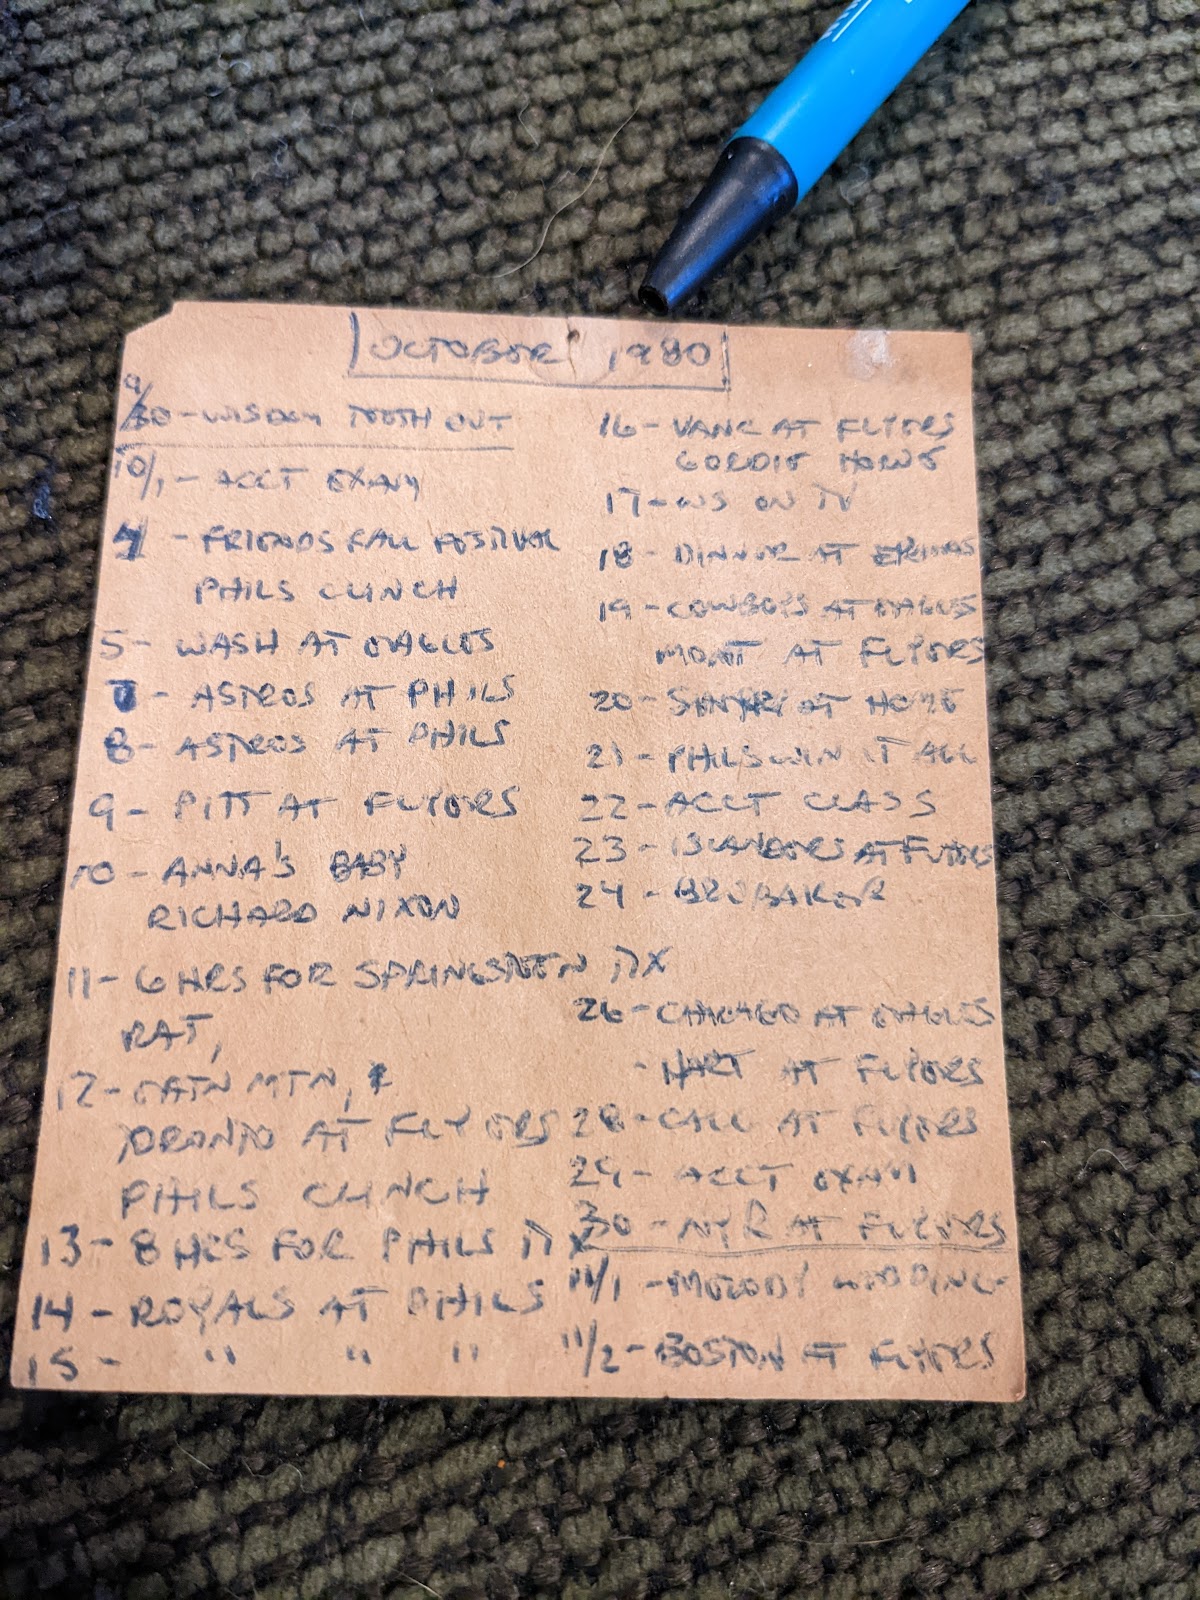 OCTOBER 1980
9/30 - WISDOM TOOTH OUT
10/1 - ACCT EXAM
4 - FRIENDS FALL FESTIVAL
PHILS CLINCH
5 - WASH AT EAGLES
7 - ASTROS AT PHILS
8 - ASTROS AT PHILS
9 - PITT AT FLYERS
10 - ANNA'S BABY
RICHARD NIXON
11 - 6 HRS FOR SPRINGSTEEN TIX
RAT,
12 - EATN MTN,
TORONTO AT FLYERS
PHILS CLINCH
13 - 8 HRS FOR PHILS TIX
14 - ROYALS AT PHILS
15 - " " "
16 - VANC AT FLYERS
GORDIE HOWE
17 - WS ON TV
18 - DINNER AT
19 - COWBOYS AT EAGLES
MONT AT FLYERS
20 - AT HOME
21 - PHILS WIN IT ALL
22 - ACCT CLASS
23 - ISLANDERS AT FLYERS
24 - BRUBAKER
26 - CHICAGO AT EAGLES
- HART AT FLYERS
28 - CALG AT FLYERS
29 - ACCT EXAM
30 - NYR AT FLYERS
11/1 - MELODY WEDDING
11/2 - BOSTON AT FLYERS